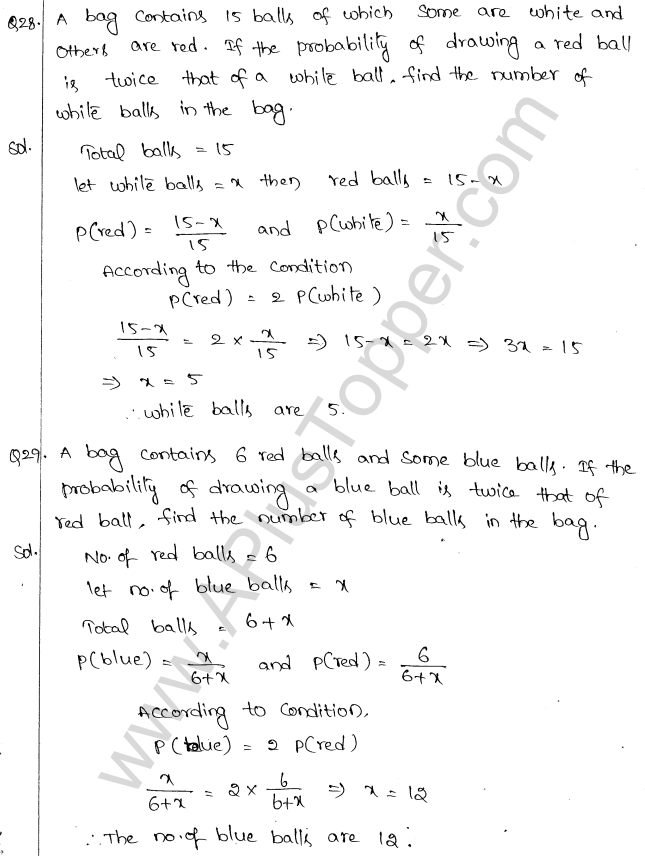 Q28. A bag contains 15 balls of which some are white and
others are red. If the probability of drawing a red ball
is twice that of a white ball, find the number of
white balls in the bag.
Sol. Total balls = 15
let white balls = x then red balls = 15-x
P(red) = (15-x)/15 and P(white) = x/15
According to the condition
P(red) = 2 P(white)
(15-x)/15 = 2 × x/15 ⇒ 15-x = 2x ⇒ 3x = 15
⇒ x = 5
∴ white balls are 5.
Q29. A bag contains 6 red balls and some blue balls. If the
probability of drawing a blue ball is twice that of
red ball, find the number of blue balls in the bag.
Sol. No. of red balls = 6
let no. of blue balls = x
Total balls = 6+x
P(blue) = x/(6+x) and P(red) = 6/(6+x)
According to condition,
P(blue) = 2 P(red)
x/(6+x) = 2 × 6/(6+x) ⇒ x = 12
∴ The no. of blue balls are 12.
www.APlusTopper.com